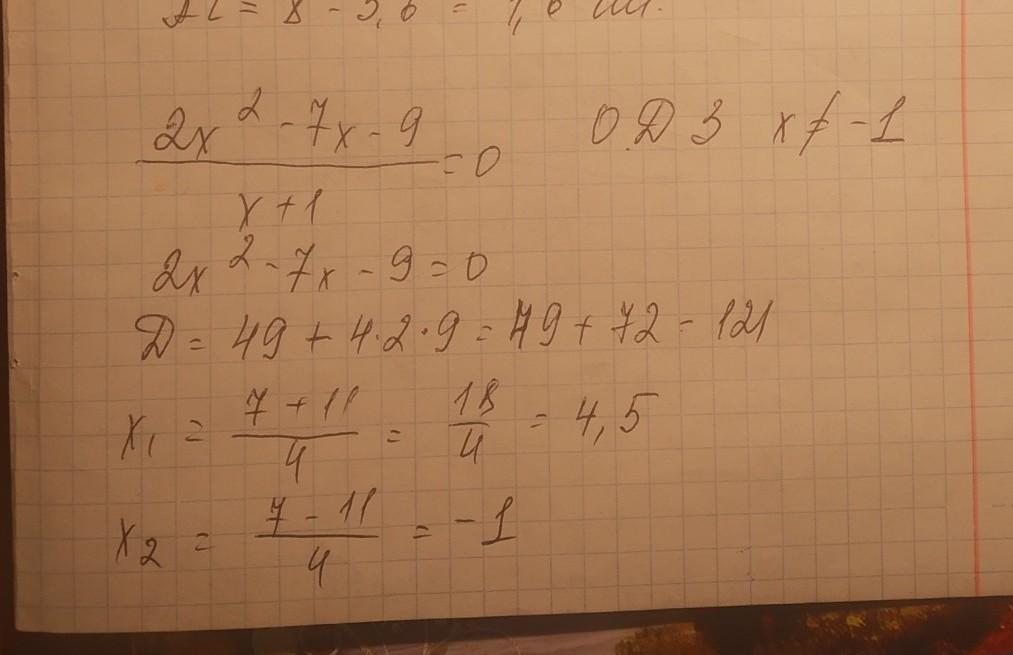 = 8 - 3,6 =
2x² - 7x - 9 / x + 1 = 0 ОДЗ x ≠ -1
2x² - 7x - 9 = 0
Д = 49 + 4·2·9 = 49 + 72 = 121
x₁ = 7 + 11 / 4 = 18 / 4 = 4,5
x₂ = 7 - 11 / 4 = -1